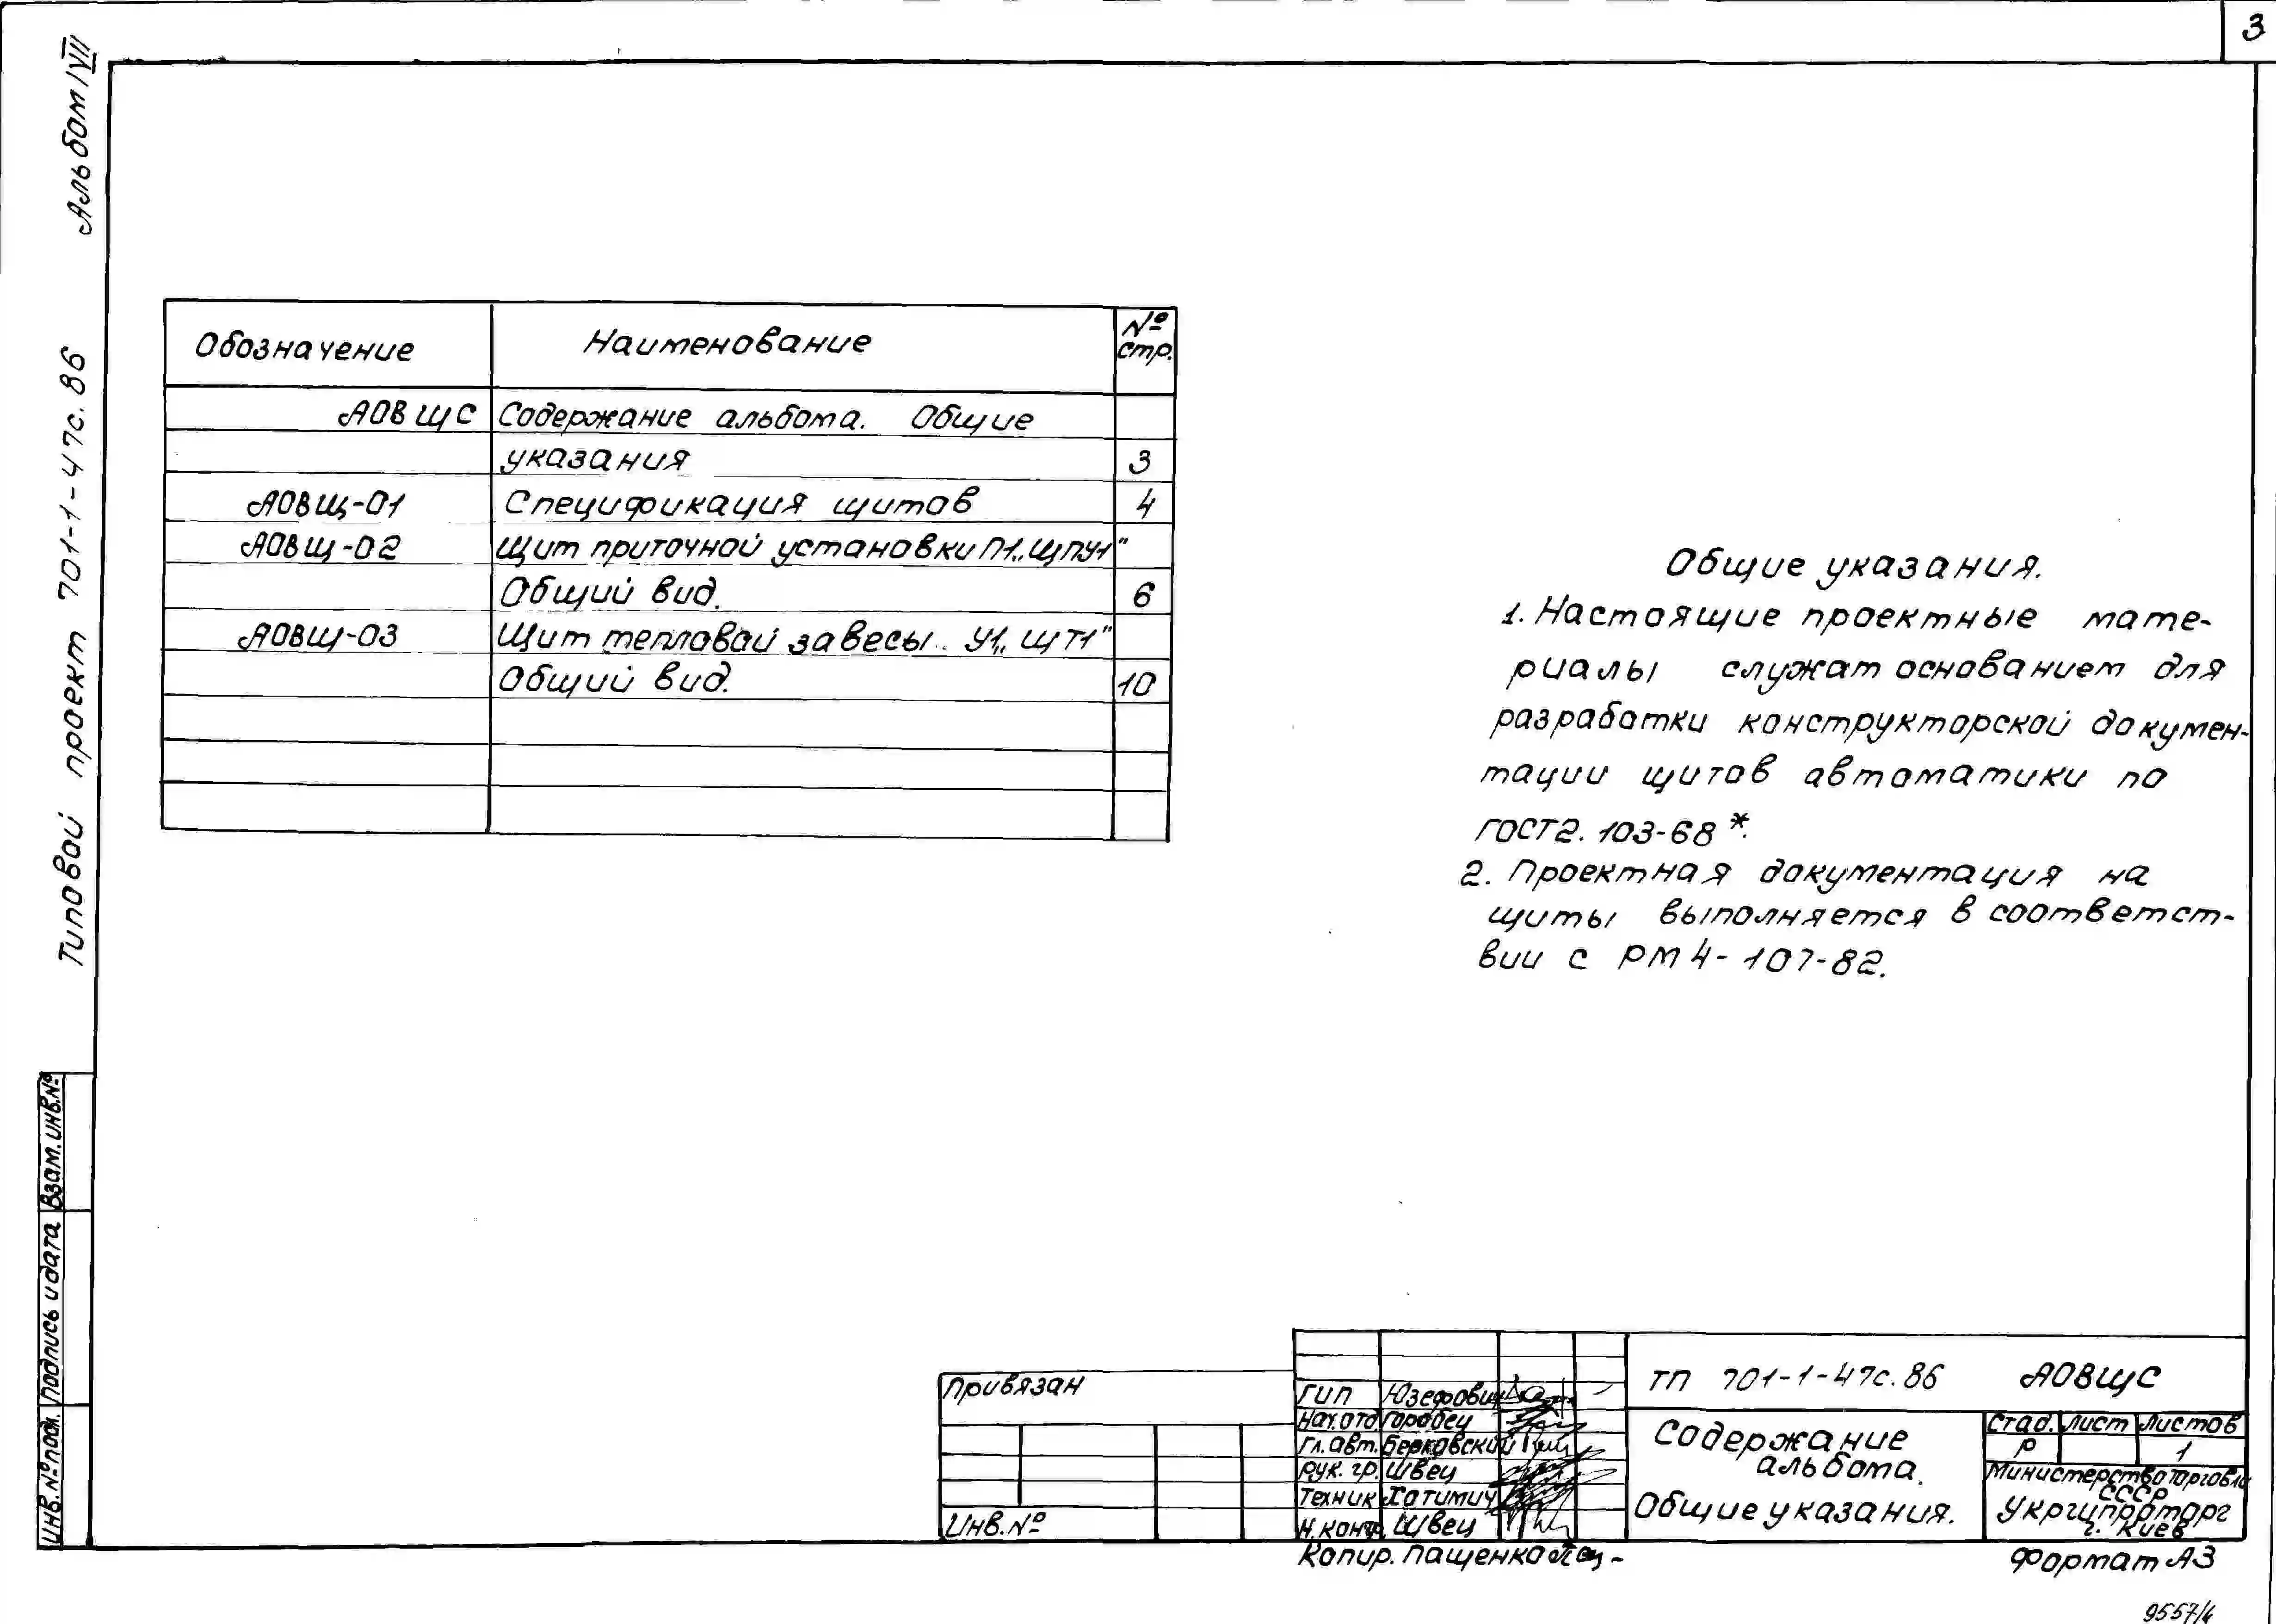 3
Альбом VII
Типовой проект 701-1-47с.86
Обозначение
Наименование
№ стр.
АОВЩС
Содержание альбома. Общие
указания
3
АОВЩ-01
Спецификация щитов
4
АОВЩ-02
Щит приточной установки П1 „ЩПУ1"
Общий вид.
6
АОВЩ-03
Щит тепловой завесы У1 „ЩТ1"
Общий вид.
10
Общие указания.
1. Настоящие проектные мате-
риалы служат основанием для
разработки конструкторской докумен-
тации щитов автоматики по
ГОСТ 2.103-68*.
2. Проектная документация на
щиты выполняется в соответст-
вии с РМ4-107-82.
Взам. инв.№
Подпись и дата
Инв.№ подл.
Привязан
Инв.№
ГИП Юзефович
Нач.отд Горабец
Гл. авт. Берковский
Рук. гр. Швец
Техник Хатимич
Н.контр. Швец
ТП 701-1-47с.86 АОВЩС
Содержание
альбома.
Общие указания.
Стад. Лист Листов
Р 1
Министерство торговли
СССР
Укргипроторг
г. Киев
Копир. Пащенко
Формат А3